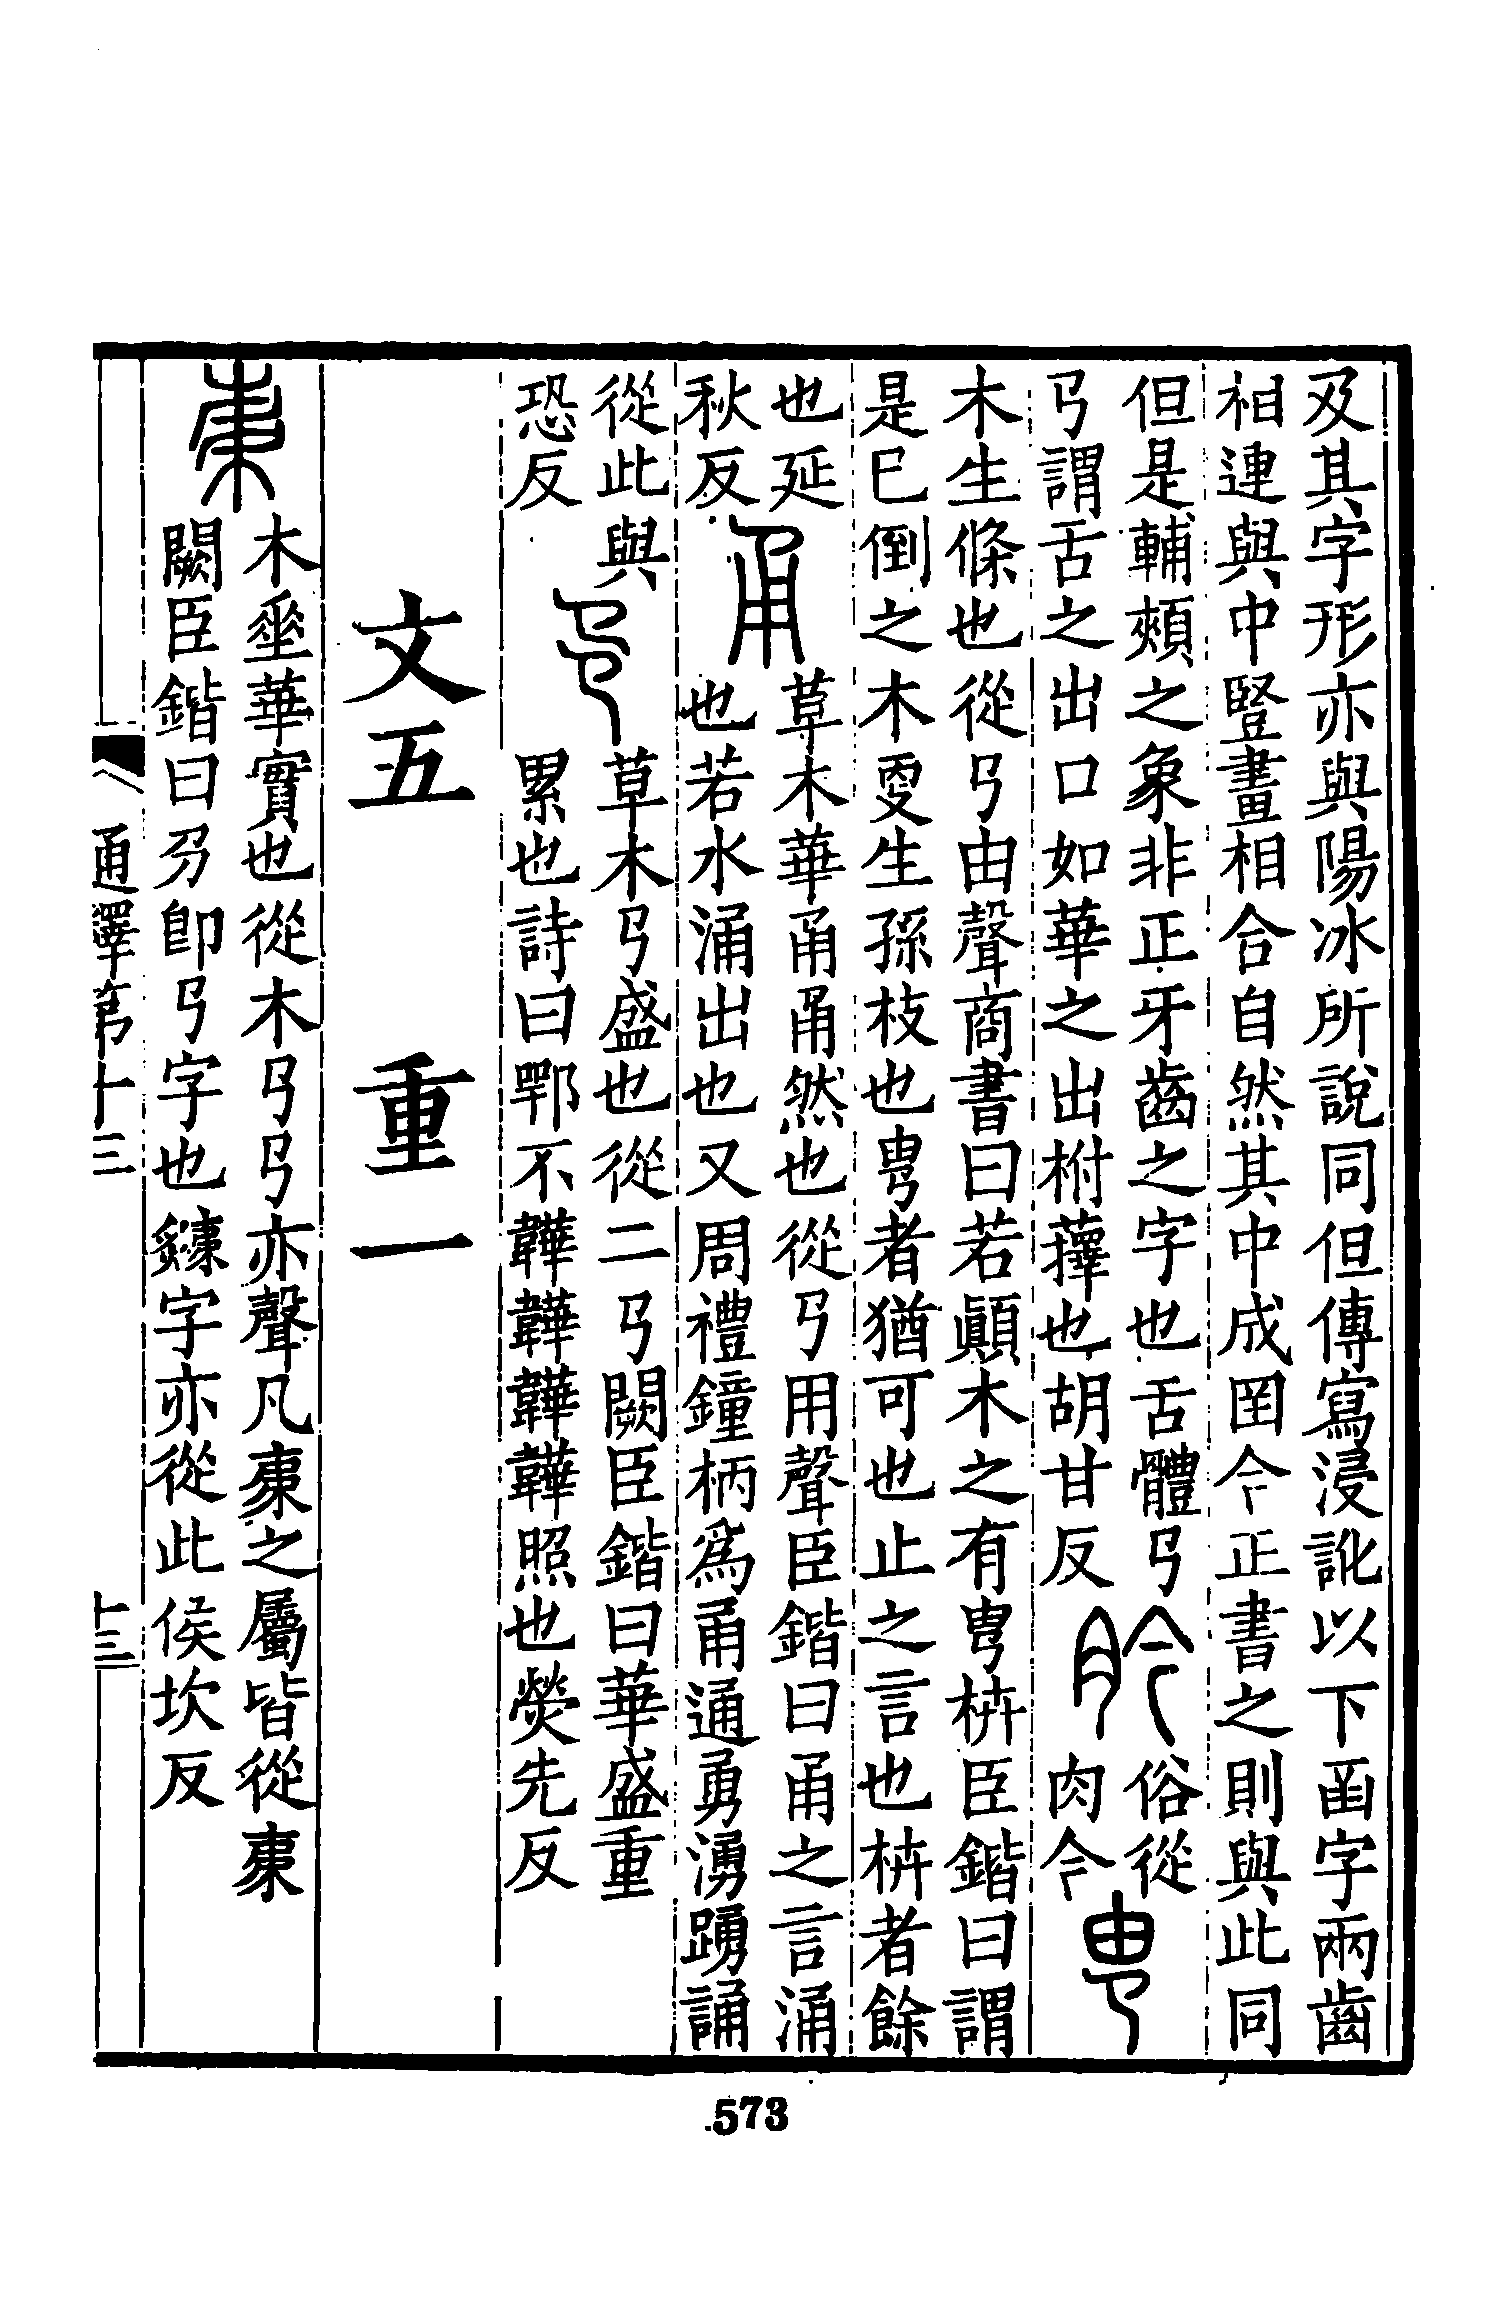 及其字形亦與陽冰所說同但傳寫浸訛以下函字兩齒
相連與中豎畫相合自然其中成囝今正書之則與此同
但是輔頰之象非正牙齒之字也舌體𢎘
𢎘謂舌之出口如華之出柎蘀也胡甘反
俗從
肉今
木生條也從𢎘由聲商書曰若顚木之有甹枿臣鍇曰謂
是已倒之木更生孫枝也甹者猶可也止之言也枿者餘
也延
秋反
甬
草木華甬甬然也從𢎘用聲臣鍇曰甬之言涌
也若水涌出也又周禮鐘柄爲甬通勇湧踴誦
從此與
恐反
草木𢎘盛也從二𢎘闕臣鍇曰華盛重
累也詩曰鄂不韡韡韡韡照也熒先反
文五 重一
木垂華實也從木𢎘𢎘亦聲凡𣐺之屬皆從𣐺
闕臣鍇曰𠃛卽𢎘字也𨯅字亦從此侯坎反
通釋第十三
十三
573